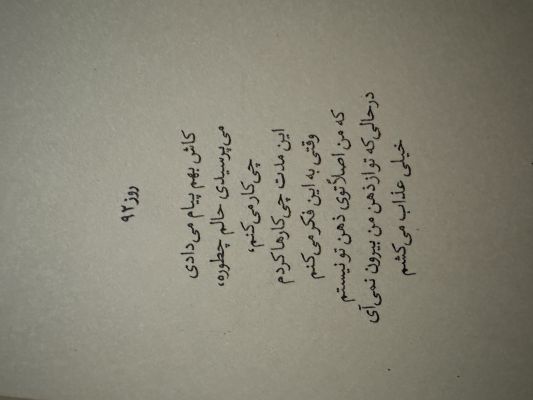 روز ۹۲
کاش بهم پیام می‌دادی
می‌پرسیدی حالم چطوره،
چی‌کار می‌کنم،
این مدت چی‌کارها کردم
وقتی به این فکر می‌کنم
که من اصلاً توی ذهن تو نیستم
درحالی‌که تو از ذهن من بیرون نمی‌آی
خیلی عذاب می‌کشم